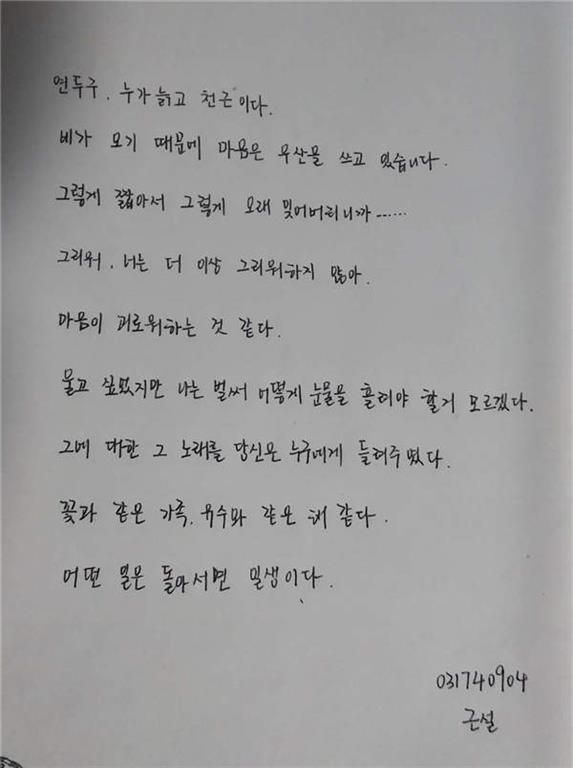 연두구, 누가 늙고 천근이다.
비가 오기 때문에 마음은 우산을 쓰고 있습니다.
그렇게 짧아서 그렇게 오래 잊어버리니까……
그리워, 너는 더 이상 그리워하지 않아.
마음이 괴로워하는 것 같다.
울고 싶었지만 나는 벌써 어떻게 눈물을 흘려야 할거 모르겠다.
그에 대한 그 노래를 당신은 누구에게 들려주었다.
꽃과 같은 가족, 유수와 같은 해 같다.
어떤 일은 돌아서면 일생이다.
031740904
근설